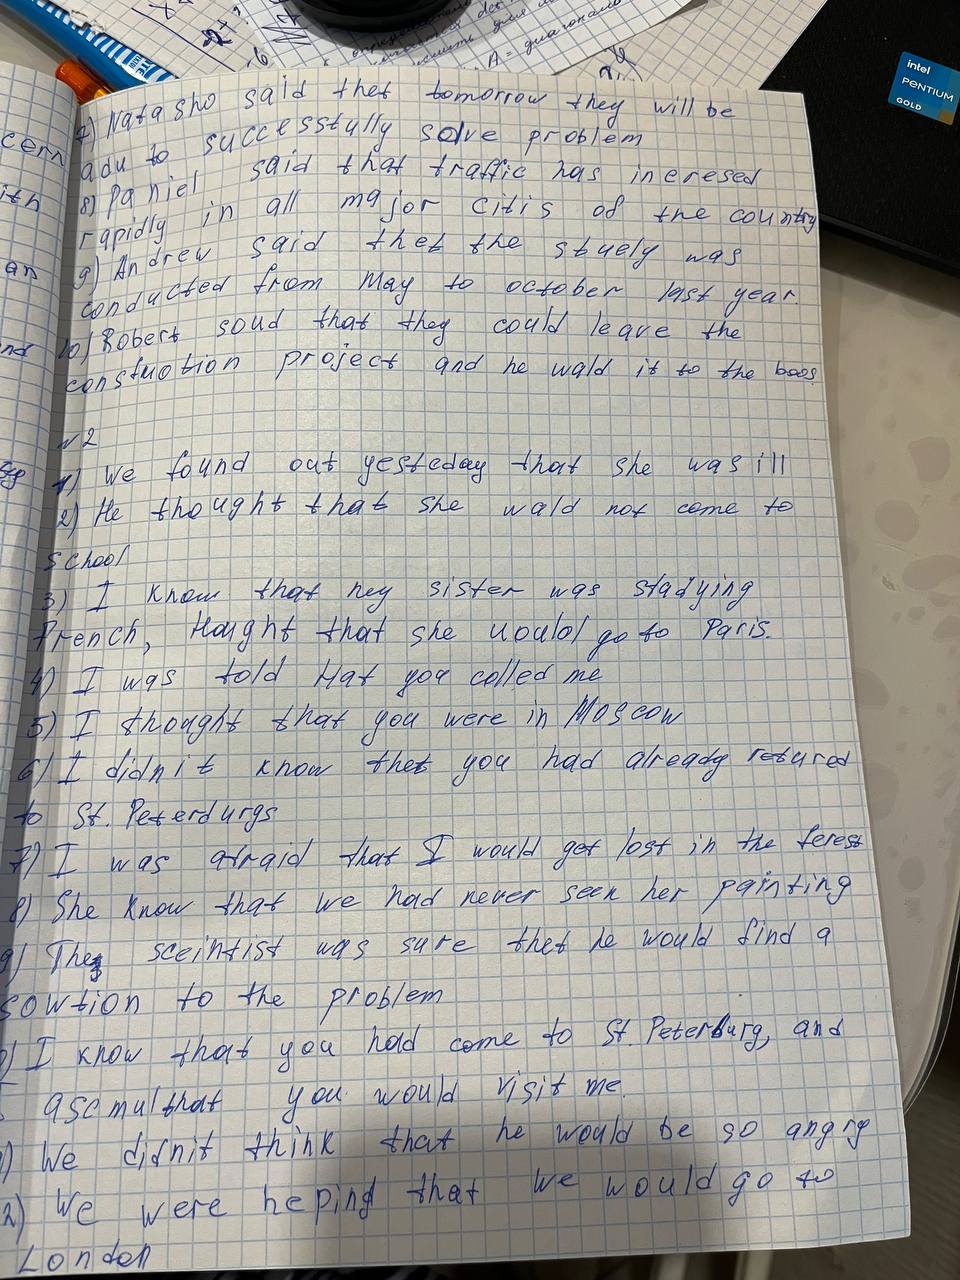 7) Natasho said thet tomorrow they will be
adu to successfully solve problem
8) Paniel said that traffic has ineresed
rapidly in all major citis of the country
9) Andrew said thet the stuely was
conducted from May to october last year.
10) Robert soud that they could leave the
constuotion project and he wald it to the boos
N2
1) We found out yesteday that she was ill
2) He thought that she wald not come to
school
3) I know that my sister was studying
French, thought that she would go to Paris.
4) I was told that you colled me
5) I thought that you were in Moscow
6) I didn it know thet you had already retured
to St. Peterdurgs
7) I was afraid that I would get lost in the ferest
8) She know that we had never seen her painting
9) The sceintist was sure thet he would find a
sowtion to the problem
I know that you had come to St. Peterburg, and
ascmulthat you would visit me.
1) We didnit think that he would be so angry
2) We were heping that we would go to
London
cern
ith
an
nd
intel
PENTIUM
GOLD
A =